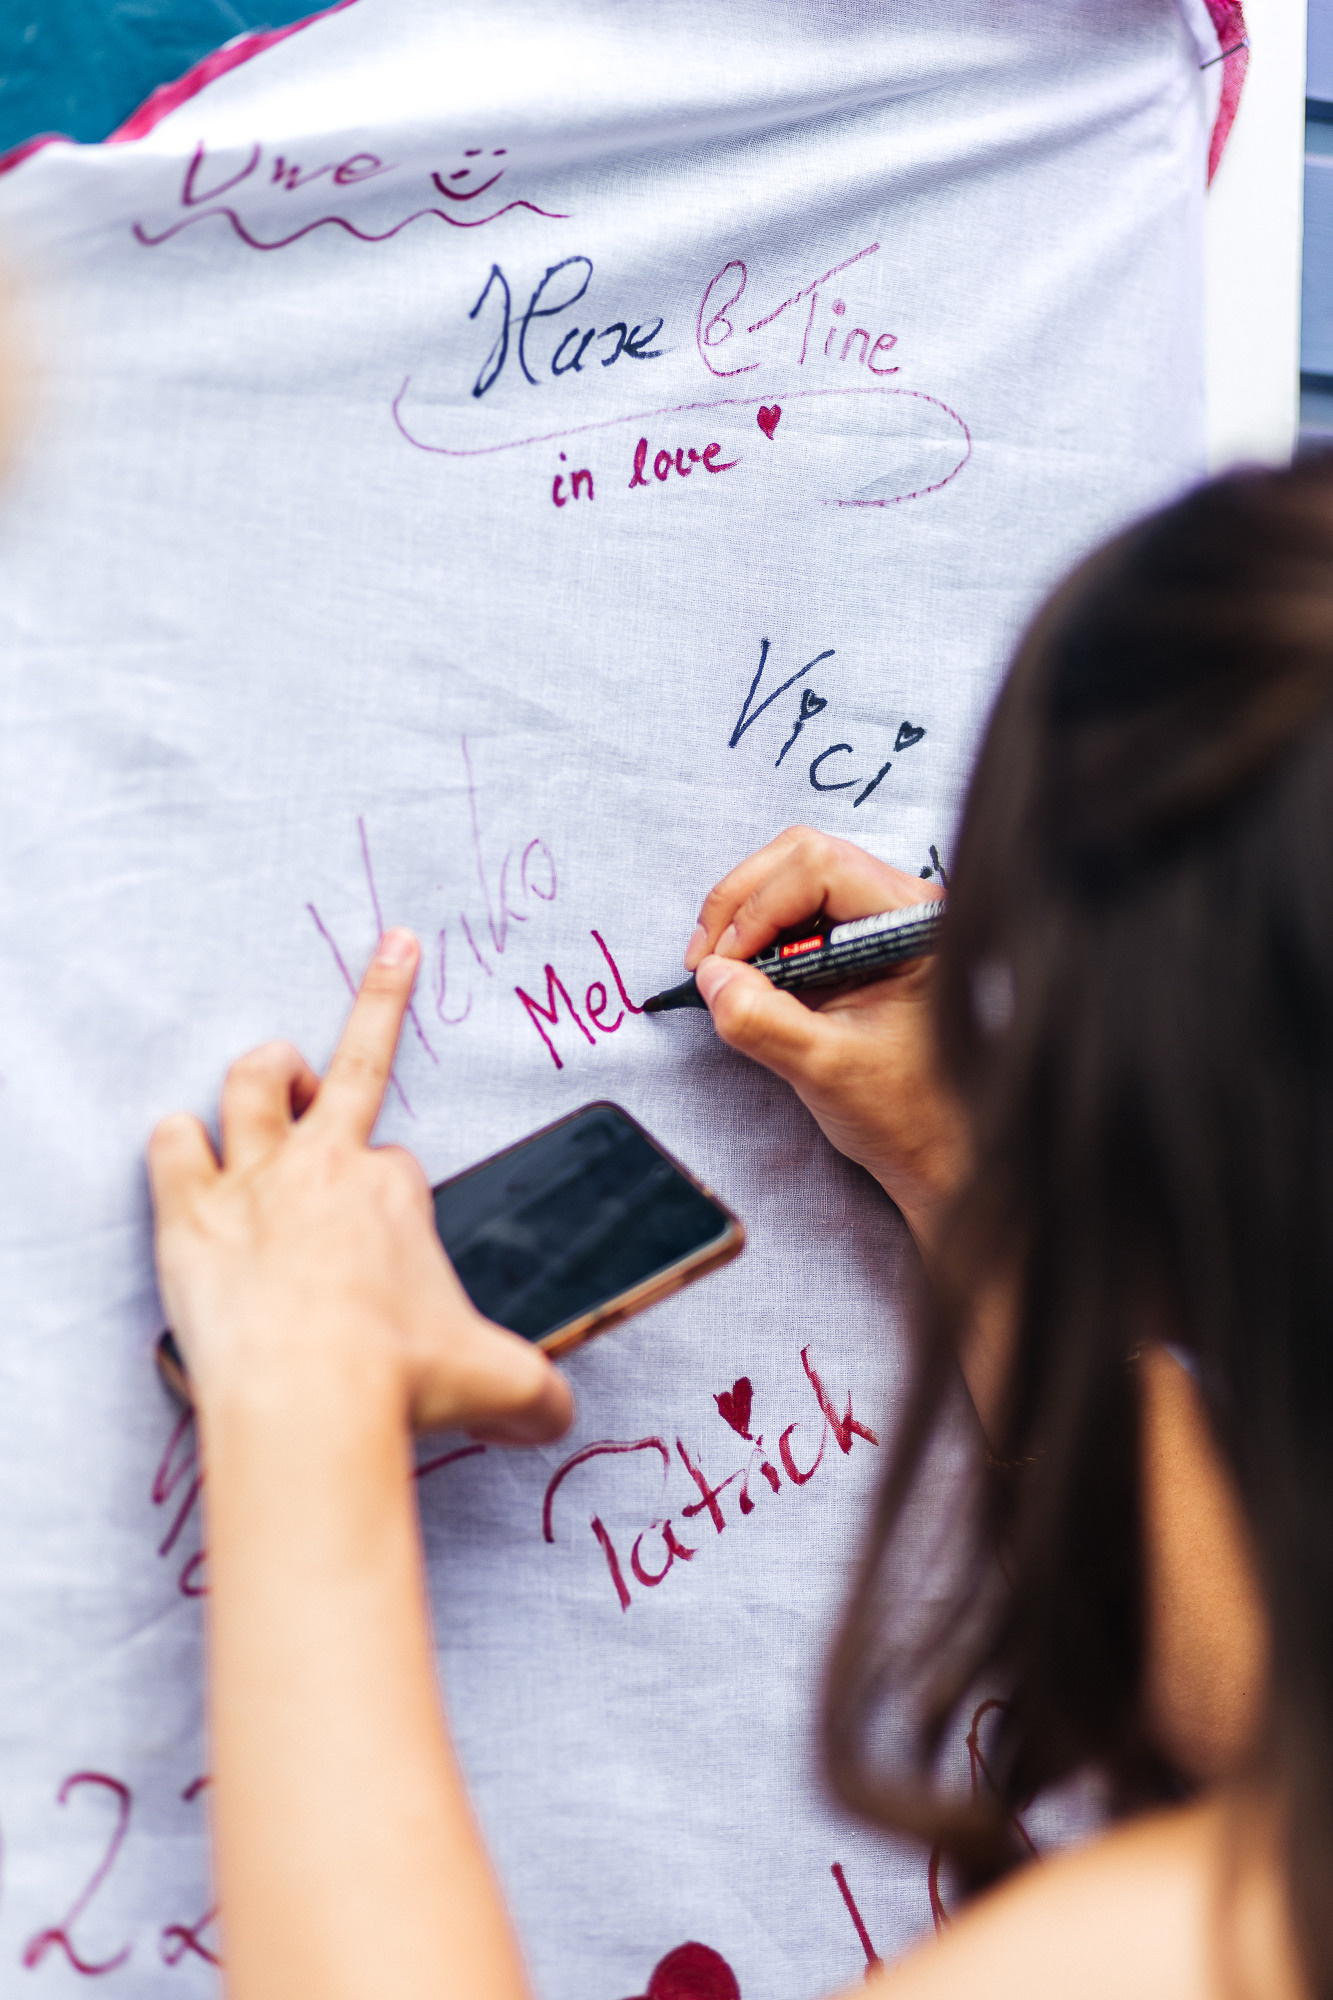 Uwe
Hase & Tine
in love
Vici
Heiko
Mel
Patrick
22